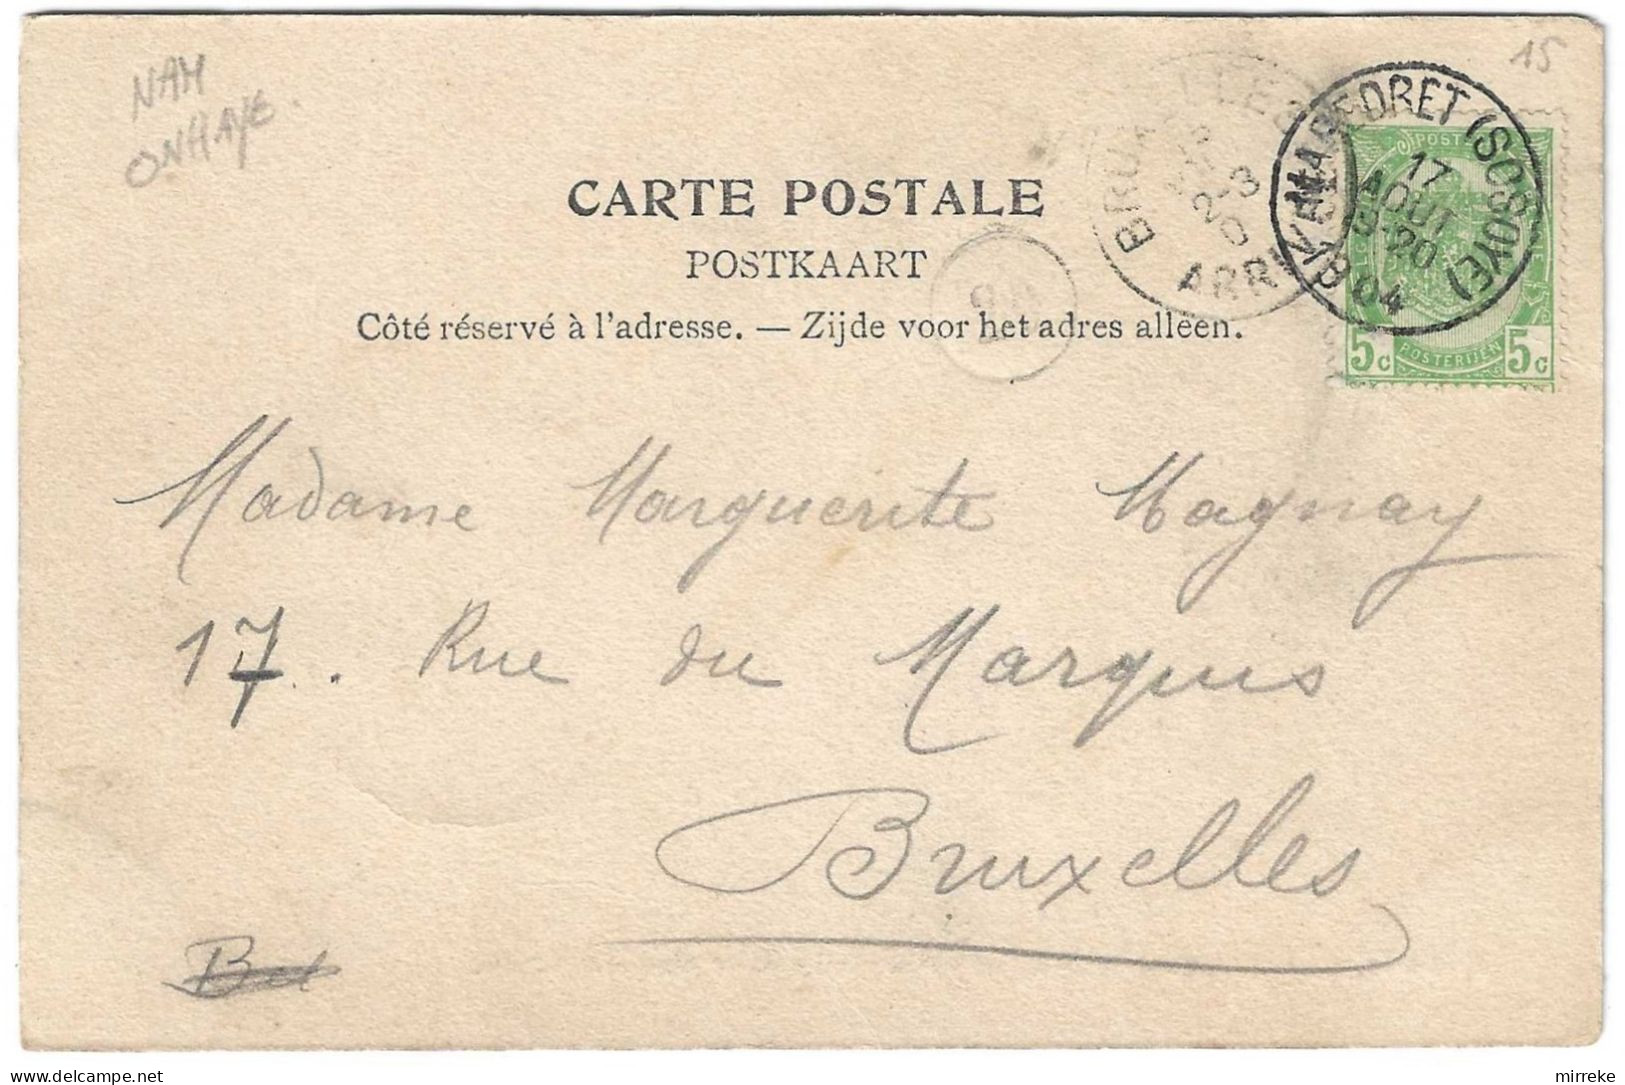 NAM
ONHAYE.
15
CARTE POSTALE
POSTKAART
Côté réservé à l'adresse. — Zijde voor het adres alleen.
BRUXELLES
ARRIV
MAREDRET (SOSOYE)
17
AOUT
20
04
POSTERIJEN
5c 5c
Madame Marguerite Magnay
17. Rue du Marquis
Bruxelles
mirreke